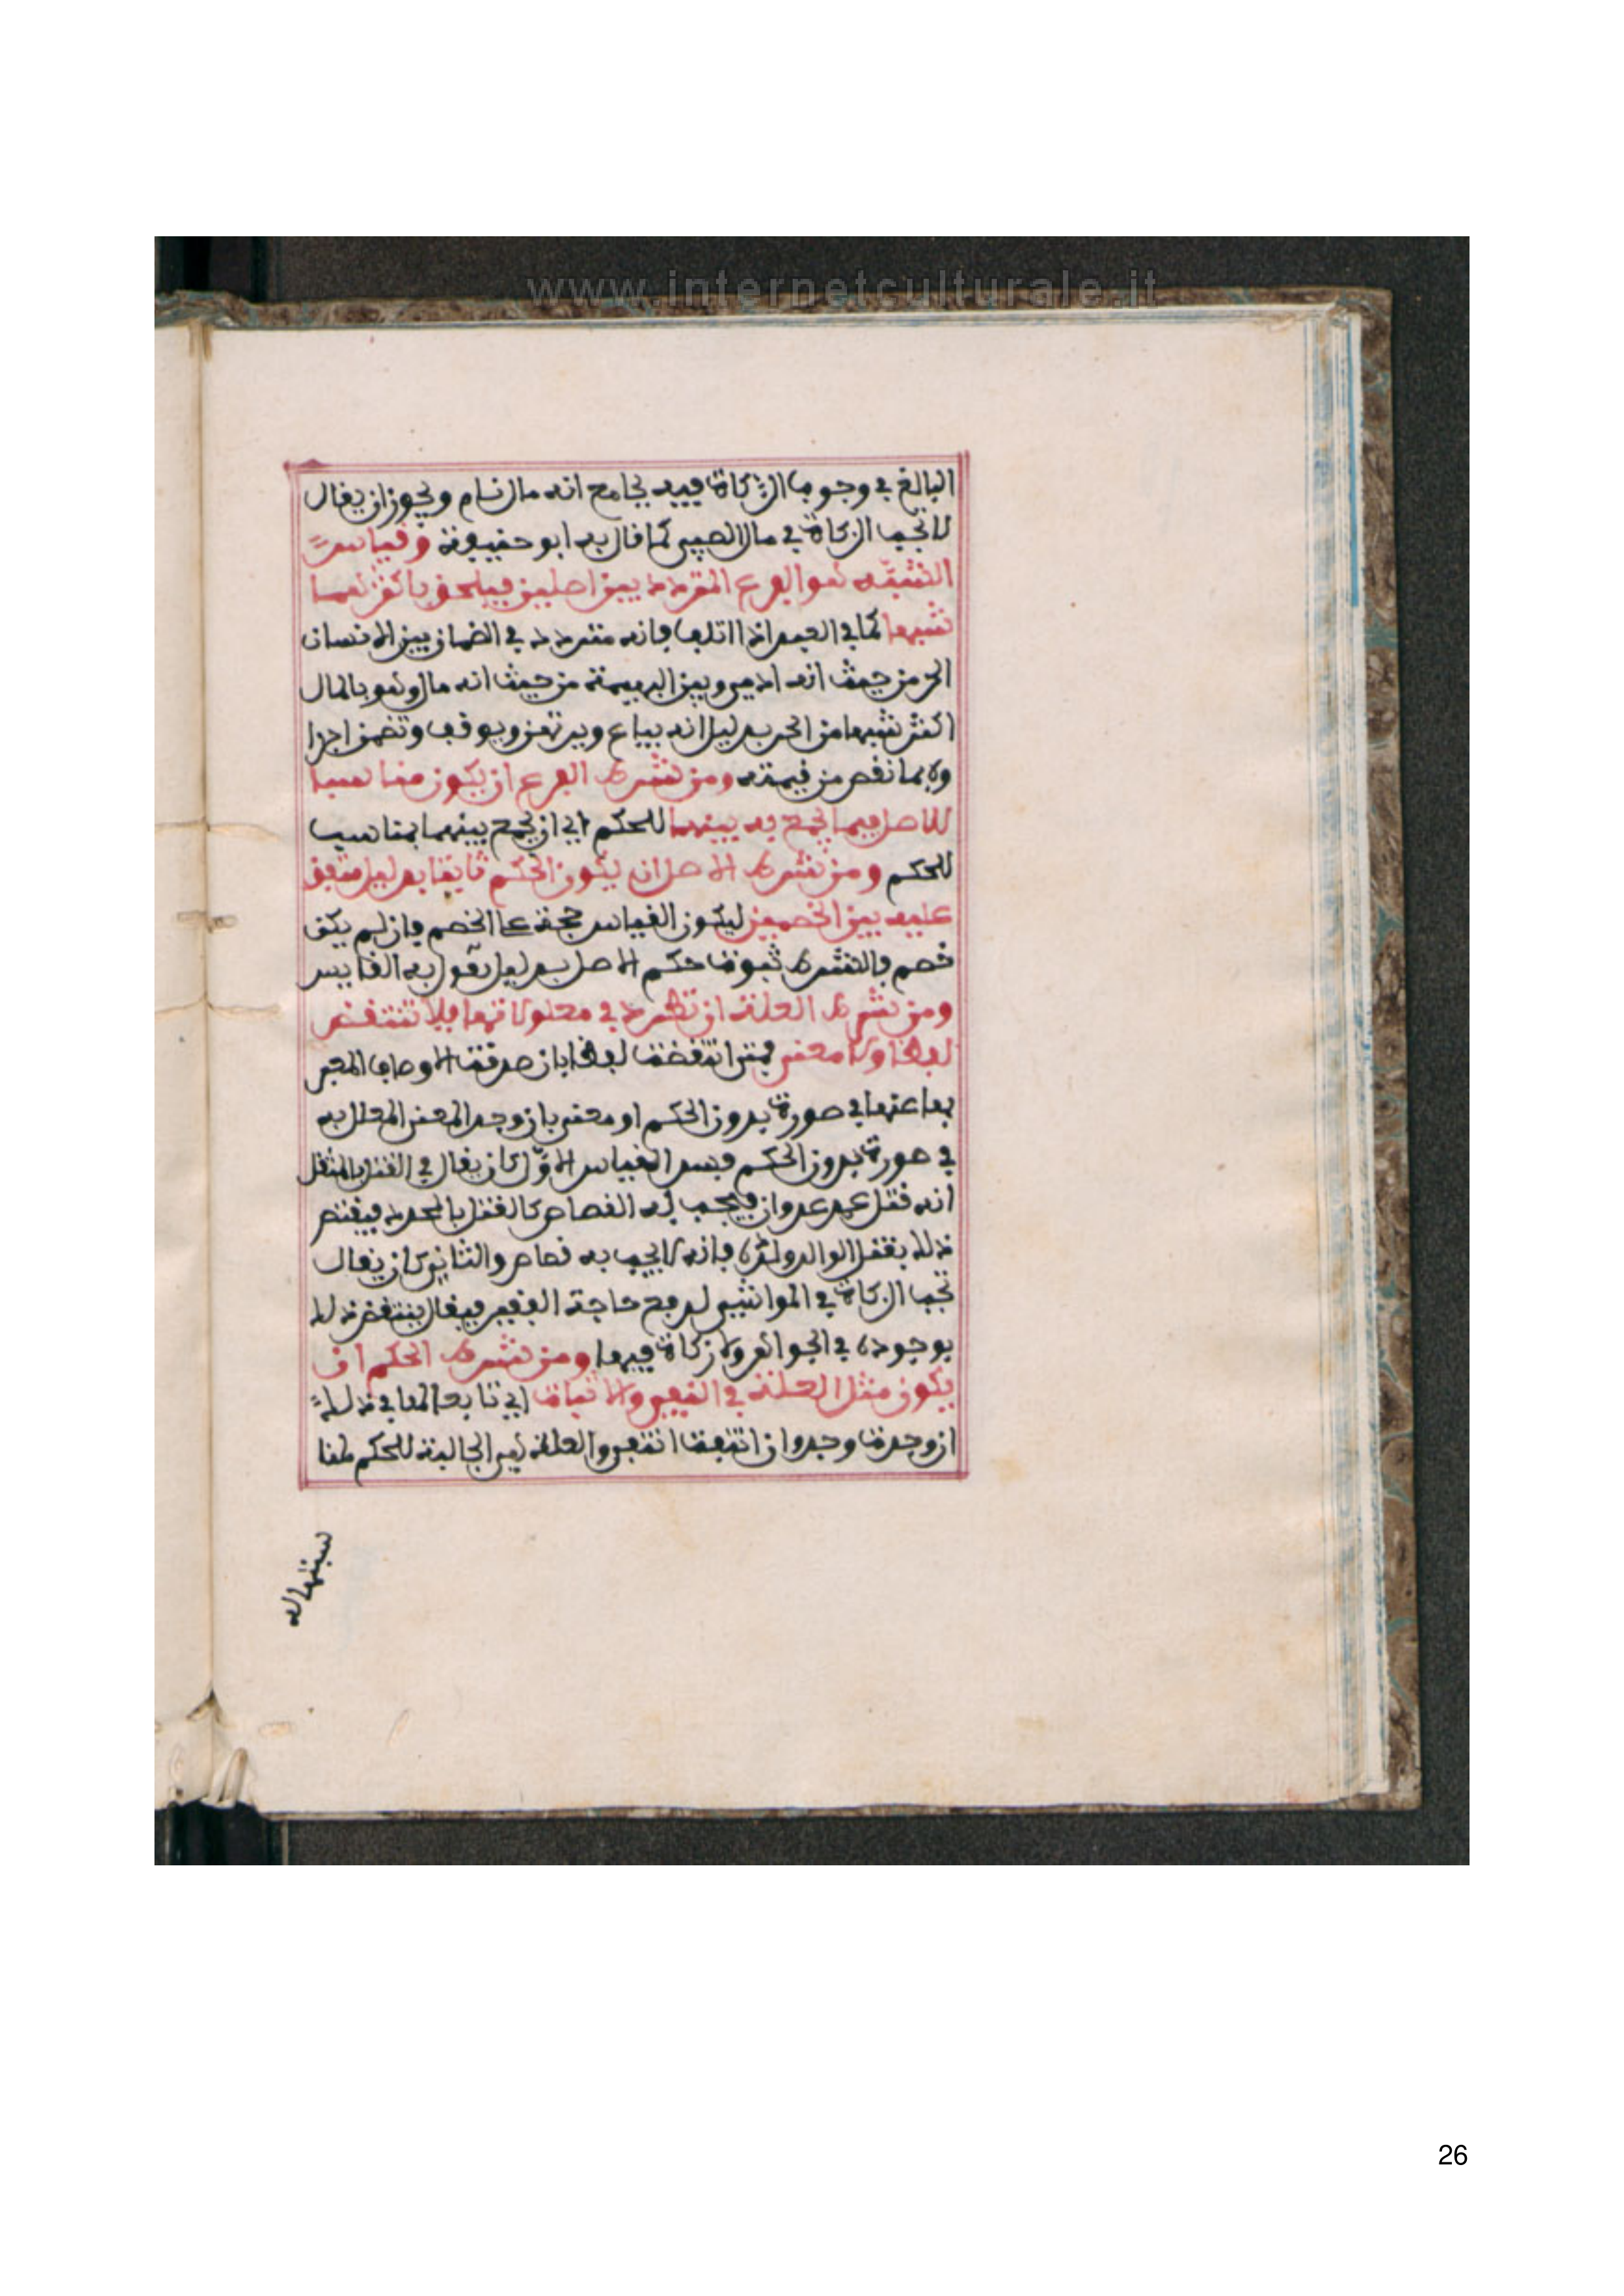 www.internetculturale.it
البالغ في وجوب الزكاة فيه بجامع انه مال نام ويجوز ان يقال
لا تجب الزكاة في مال الصبي كما قال به ابو حنيفة وقياس
الشبه هو الفرع المتردد بين اصلين فيلحق باكثرهما
شبها كما في العبد اذا اتلف فانه متردد في الضمان بين الانسان
الحر من حيث انه ادمي وبين البهيمة من حيث انه مال وهو بالمال
اكثر شبها من الحر بدليل انه يباع ويرتهن ويوقف وتضمن اجزا
وه بما نقص من قيمته ومن شرط الفرع ان يكون مناسبا
للاصل فيما يجمع به بينهما للحكم اي ان يجمع بينهما بمناسب
للحكم ومن شرط الاصل ان يكون الحكم ثابتا بدليل متفق
عليه بين الخصمين ليكون القياس حجة على الخصم فان لم يكن
خصم فالشرط ثبوت حكم الاصل بدليل يقول به القايس
ومن شرط العلة ان تطرد في معلولاتها فلا تنتقض
لفظا ولا معنى فمتى انتقضت لفظا بان صدقت الاوصاف المعبر
بها عنها في صورة بدون الحكم او معنى بان وجد المعنى المعلل به
في صورة بدون الحكم فسد القياس الاول كان يقال في القتل بالمثقل
انه قتل عمد عدوان فيجب به القصاص كالقتل بالمحدد فينتقض
ذلك بقتل الوالد ولده فانه لا يجب به قصاص والثاني كان يقال
تجب الزكاة في المواشي لدفع حاجة الفقير فيقال ينتقض ذلك
بوجوده في الجواهر ولا زكاة فيها ومن شرط الحكم ان
يكون مثل العلة في النفي والاثبات اي تابعا لها في ذلك
ان وجدت وجد وان انتفت انتفى والعلة هي الجالبة للحكم
26